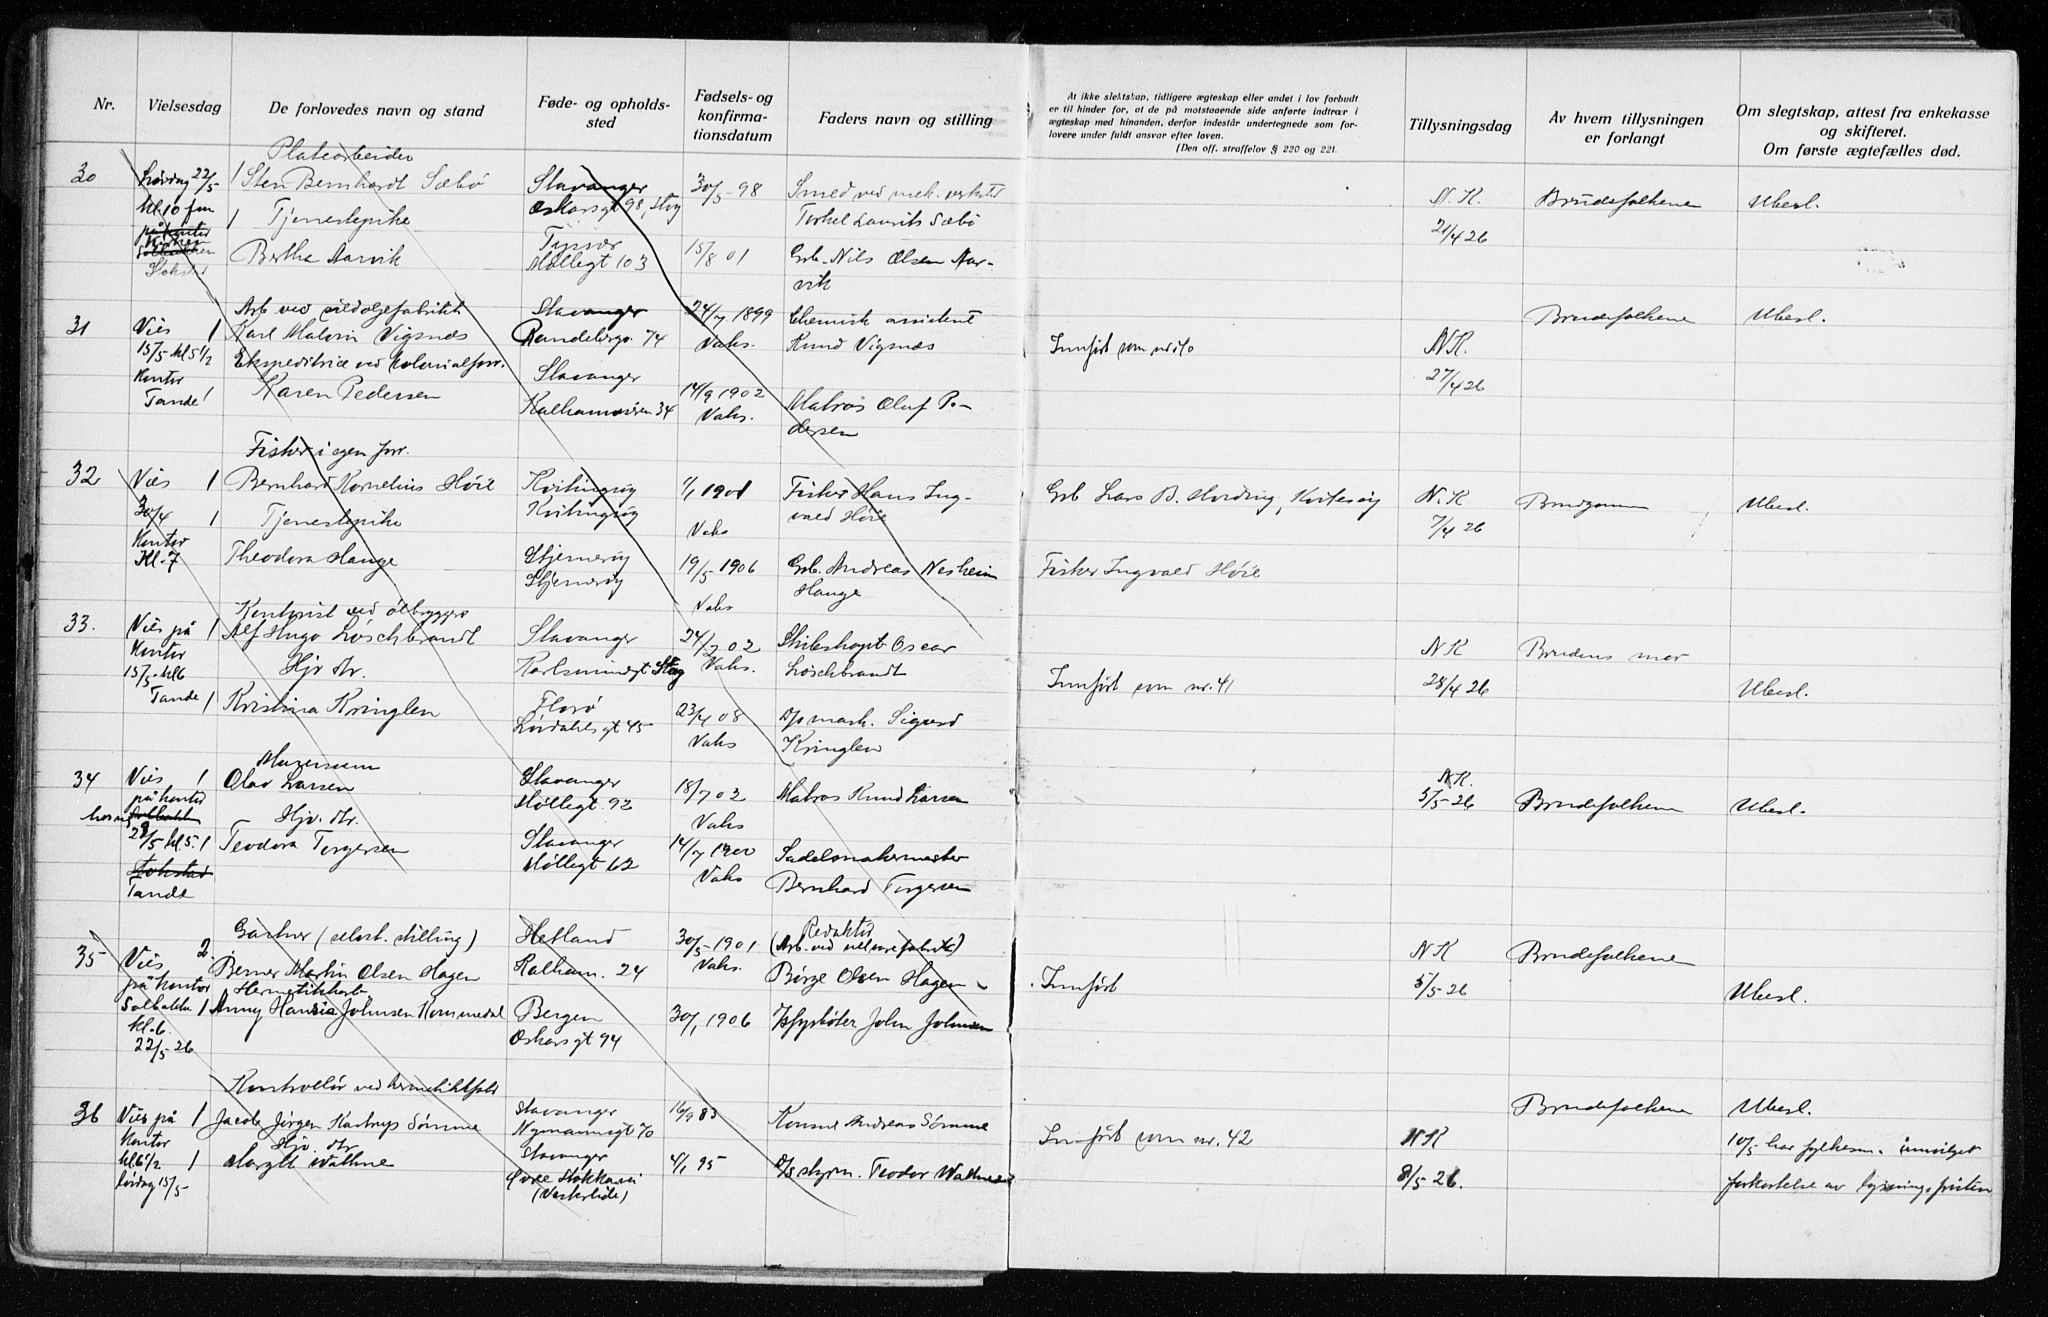 Nr.
Vielsesdag
De forlovedes navn og stand
Føde- og opholds-
sted
Fødsels- og
konfirma-
tionsdatum
Faders navn og stilling
At ikke slektskap, tidligere ægteskap eller andet i lov forbudt
er til hinder for, at de på motstaaende side anførte indtrær i
ægteskap med hinanden, derfor indestår undertegnede som for-
lovere under fuldt ansvar efter loven.
(Den off. straffelov § 220 og 221.
Tillysningsdag
Av hvem tillysningen
er forlangt
Om slegtskap, attest fra enkekasse
og skifteret.
Om første ægtefælles død.
30
Lørdag 22/5
kl. 10 fm
på kontor
Stokstad
Platearbeider
1 Sten Bernhardt Sæbø
1 Tjenestepike
Bertha Aarvik
Stavanger
Oskarsgt 98, Stvg
Tysvær
Møllegt 103
30/5-98
15/8 01
Smed ved mek. verksted
Torkel Laurits Sæbø
Grb. Nils Olsen Aar-
vik
N. K.
21/4 26
Brudefolkene
Ubesl.
31
Viet 1
15/5 kl 5 1/2
Kontor
Tande 1
Arb ved sildoljefabrikk
Karl Malvin Vigsnæs
Ekspeditrice ved kolonialforr.
Karen Pedersen
Stavanger
Randabergv. 74
Stavanger
Kalhammervn 34
24/7 1899
Vaks.
14/9 1902
Vaks.
Chemisk assistent
Knud Vigsnæs
Matros Oluf Pe-
dersen
Innført som nr. 40
N.K.
27/4 26
Brudefolkene
Ubesl.
32
Viet 1
30/4 1
Kontor
Kl. 7
Fisker i egen forr.
Bernhard Kornelius Høie
Tjenestepike
Theodora Hauge
Kvitingsøy
Kvitingsøy
Stjernerøy
Stjernerøy
1/1 1901
Vaks
19/5 1906
Vaks
Fisker Hans Ing-
vald Høie
Grb. Andreas Nesheim
Hauge
Grb Lars B.
Fisker Ingvald Høie
N. K
7/4 26
Brudgommen
Ubesl.
33.
Viet på 1
Kontor
15/5 kl 6
Tande 1
Kontorist ved ølbryggeri
Alf Hugo Løschbrandt
Hjv. dtr.
Kristina Kringlen
Stavanger
Karlsminnegt Stvg
Florø
Lørdahlsgt 45
24/2 02
Vaks.
23/4 08
Vaks
Skibskapt Oscar
Løschbrandt
D/s mask. Sigurd
Kringlen
Innført som nr. 41
N K
28/4 26
Brudens mor
Ubesl.
34
Viet 1
på kontor
29/5 kl 5. 1
Stokstad
Tande
Murersvenn
Olav Larsen
Hjv. dtr.
Teodora Torgersen
Stavanger
Møllegt. 92
Stavanger
Møllegt 62
18/7 02
Vaks
14/7 1900
Vaks
Matros Knud Larsen
Sadelmakermester
Bernhard Torgersen
N.K.
5/5-26
Brudefolkene
Ubesl.
35
Viet 2.
på kontor
Solbakken 1
kl. 6.
22/5-26
Gartner (selvst. stilling)
Berner Martin Olsen Hagen
Hermetikkarb
Anny Hansie Johnsen Kommedal
Hetland
Kalham. 24
Bergen
Oskarsgt 94
30/5-1901
Vaks.
30/1 1906
Redaktør
Børge Olsen Hagen
Isfyrbøter John Johnsen
Innført
N K
5/5-26
Brudefolkene
Ubesl.
36
Viet på 1
Kontor
kl 6 1/2 1
lørdag 15/5
Kontrollør ved hermetikkfabr
Jacob Jørgen Kastrup Sømme
Hjv. dtr
Margit Wathne
Stavanger
Nymannsgt 70
Stavanger
Øvre Stokkavei
(Vesterlide)
16/9 83
4/1 95
Konsul Andreas Sømme
D/s styrm. Teodor Wathne
Innført som nr. 42
N K
8/5-26.
Brudefolkene
Ubesl.
10/5 har fylkesm. innvilget
forkortelse av lysningsfristen